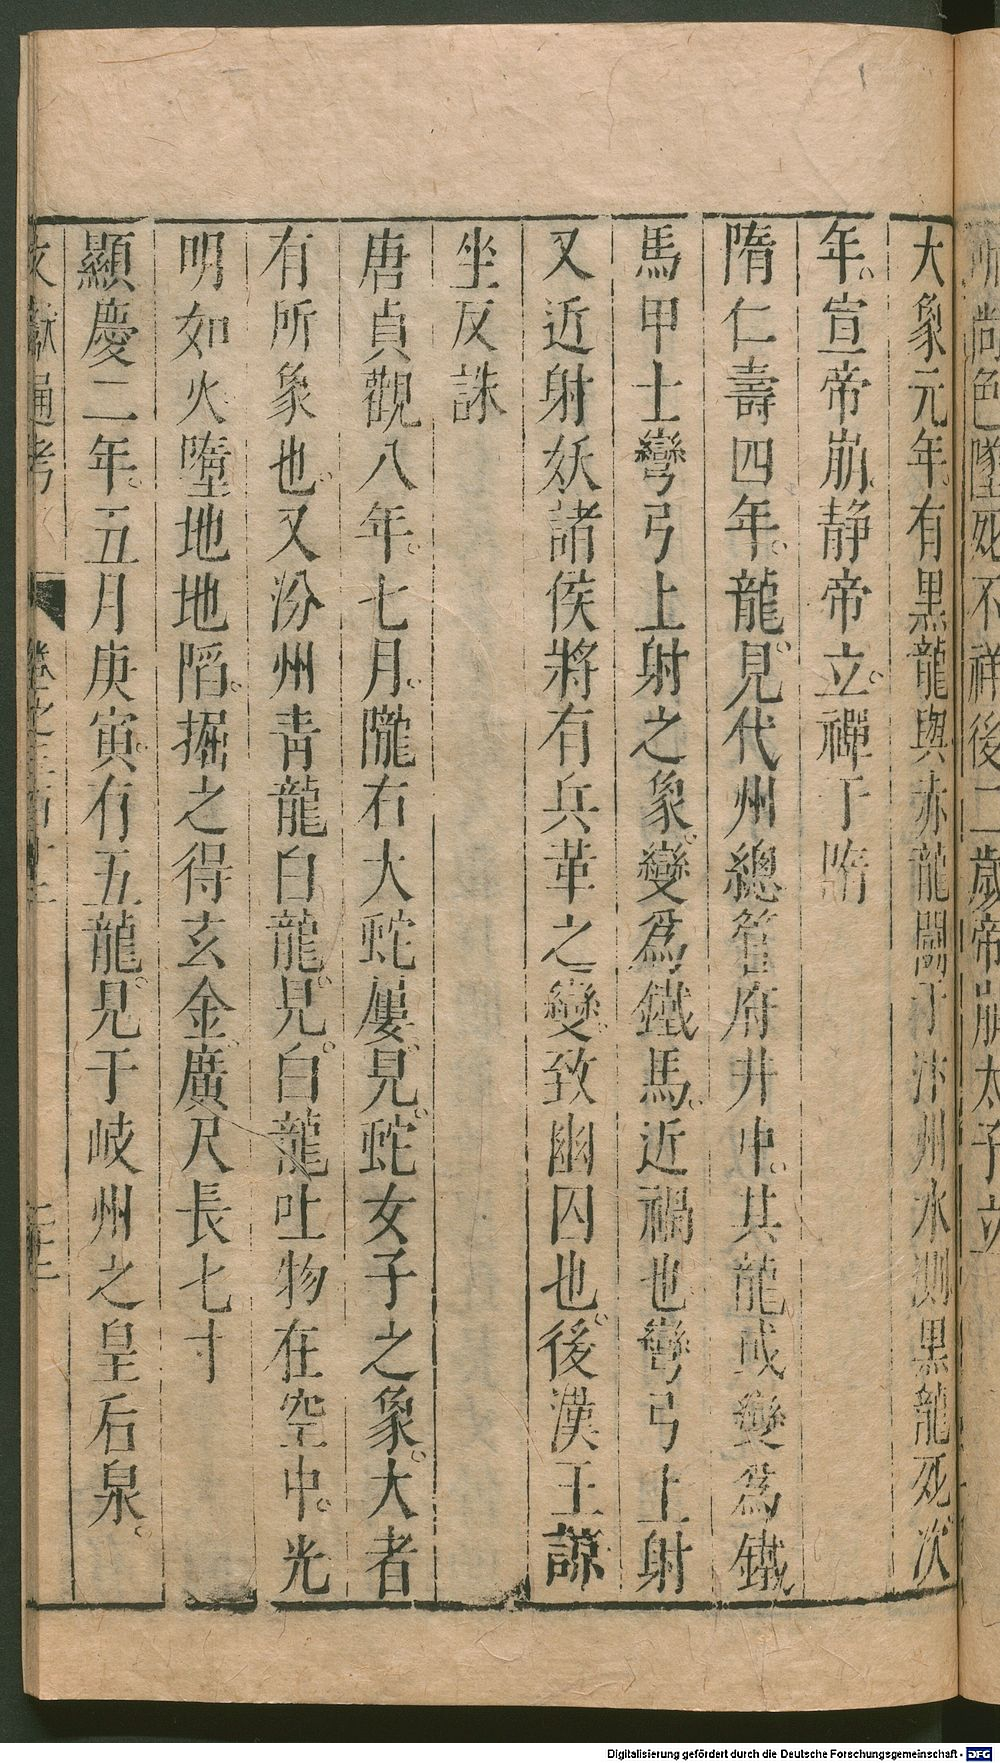 尚色墜死不祥後二歲帝崩太子立
大象元年有黑龍與赤龍鬪于汴州水測黑龍死次
年宣帝崩靜帝立禪于隋
隋仁壽四年龍見代州總管府井中其龍或變爲鐵
馬甲士彎弓上射之象變爲鐵馬近禍也彎弓上射
又近射妖諸侯將有兵革之變致幽囚也後漢王諒
坐反誅
唐貞觀八年七月隴右大蛇屢見蛇女子之象大者
有所象也又汾州青龍白龍見白龍吐物在空中光
明如火墮地地陷掘之得玄金廣尺長七寸
顯慶二年五月庚寅有五龍見于岐州之皇后泉
文獻通考 卷之三百十三
Digitalisierung gefördert durch die Deutsche Forschungsgemeinschaft - DFG